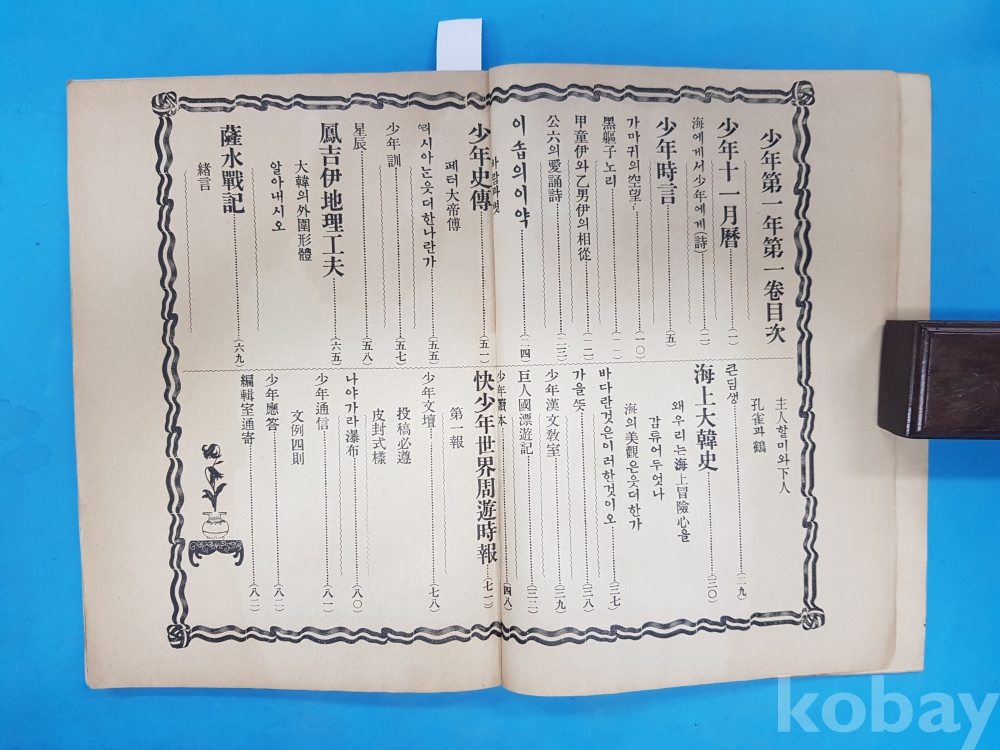 少年第一年第一卷目次
少年十一月曆 (一)
海에게서少年에게(詩) (二)
少年時言 (五)
가마귀의空望 (一〇)
黑軀子노리 (一一)
甲童伊와乙男伊의相從 (一二)
公六의愛誦詩 (二三)
이솝의이약 (二四)
바람과볏
主人할미와下人
孔雀과鶴
큰딤생 (二九)
海上大韓史 (三〇)
왜우리는海上冒險心을
감튜어두엇나
海의美觀은읏더한가
바다란것은이러한것이오 (三七)
가을뜻 (三八)
少年漢文敎室 (三九)
巨人國漂遊記 (三二)
少年讀本 (四八)
少年史傳 (五一)
페터大帝傳
러시아는읏더한나란가 (五五)
少年訓 (五七)
星辰 (五八)
鳳吉伊地理工夫 (六五)
大韓의外圍形體
알아내시오
薩水戰記 (六九)
緖言
快少年世界周遊時報 (七一)
第一報
少年文壇 (七八)
投稿必遵
皮封式樣
나야가라瀑布 (八〇)
少年通信 (八一)
文例四則
少年應答 (八二)
編輯室通寄 (八二)
kobay